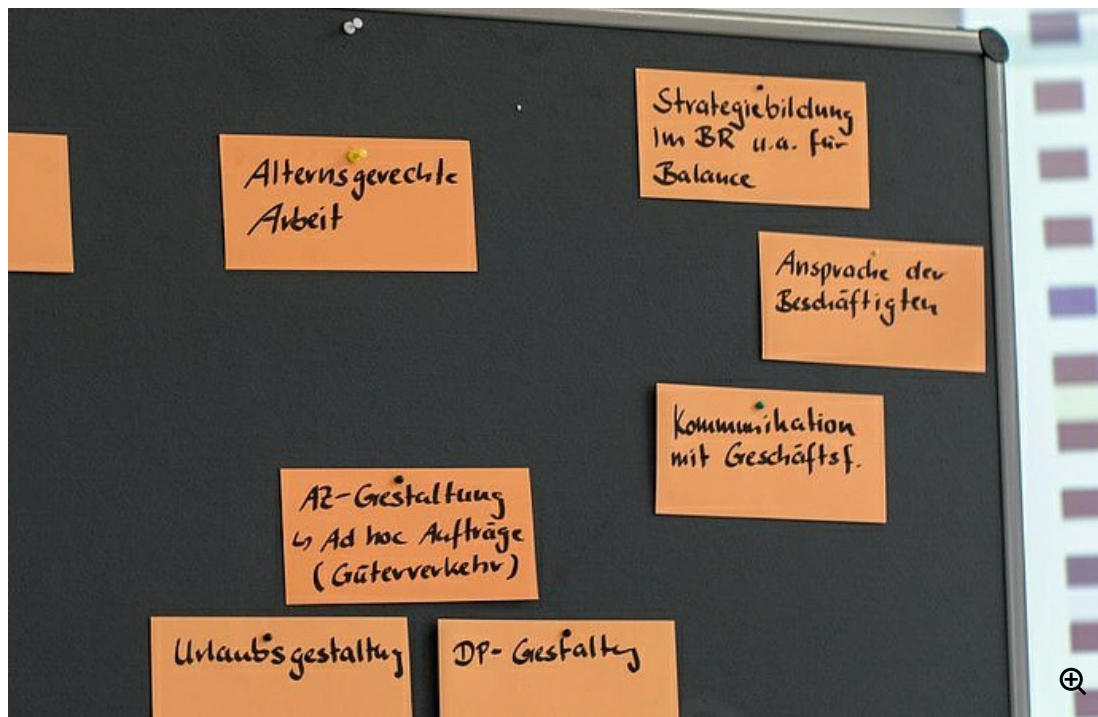 Alternsgerechte
Arbeit
Strategiebildung
im BR u.a. für
Balance
Ansprache der
Beschäftigten
Kommunikation
mit Geschäftsf.
AZ-Gestaltung
↳ Ad hoc Aufträge
(Güterverkehr)
Urlaubsgestaltung
DP-Gestaltung